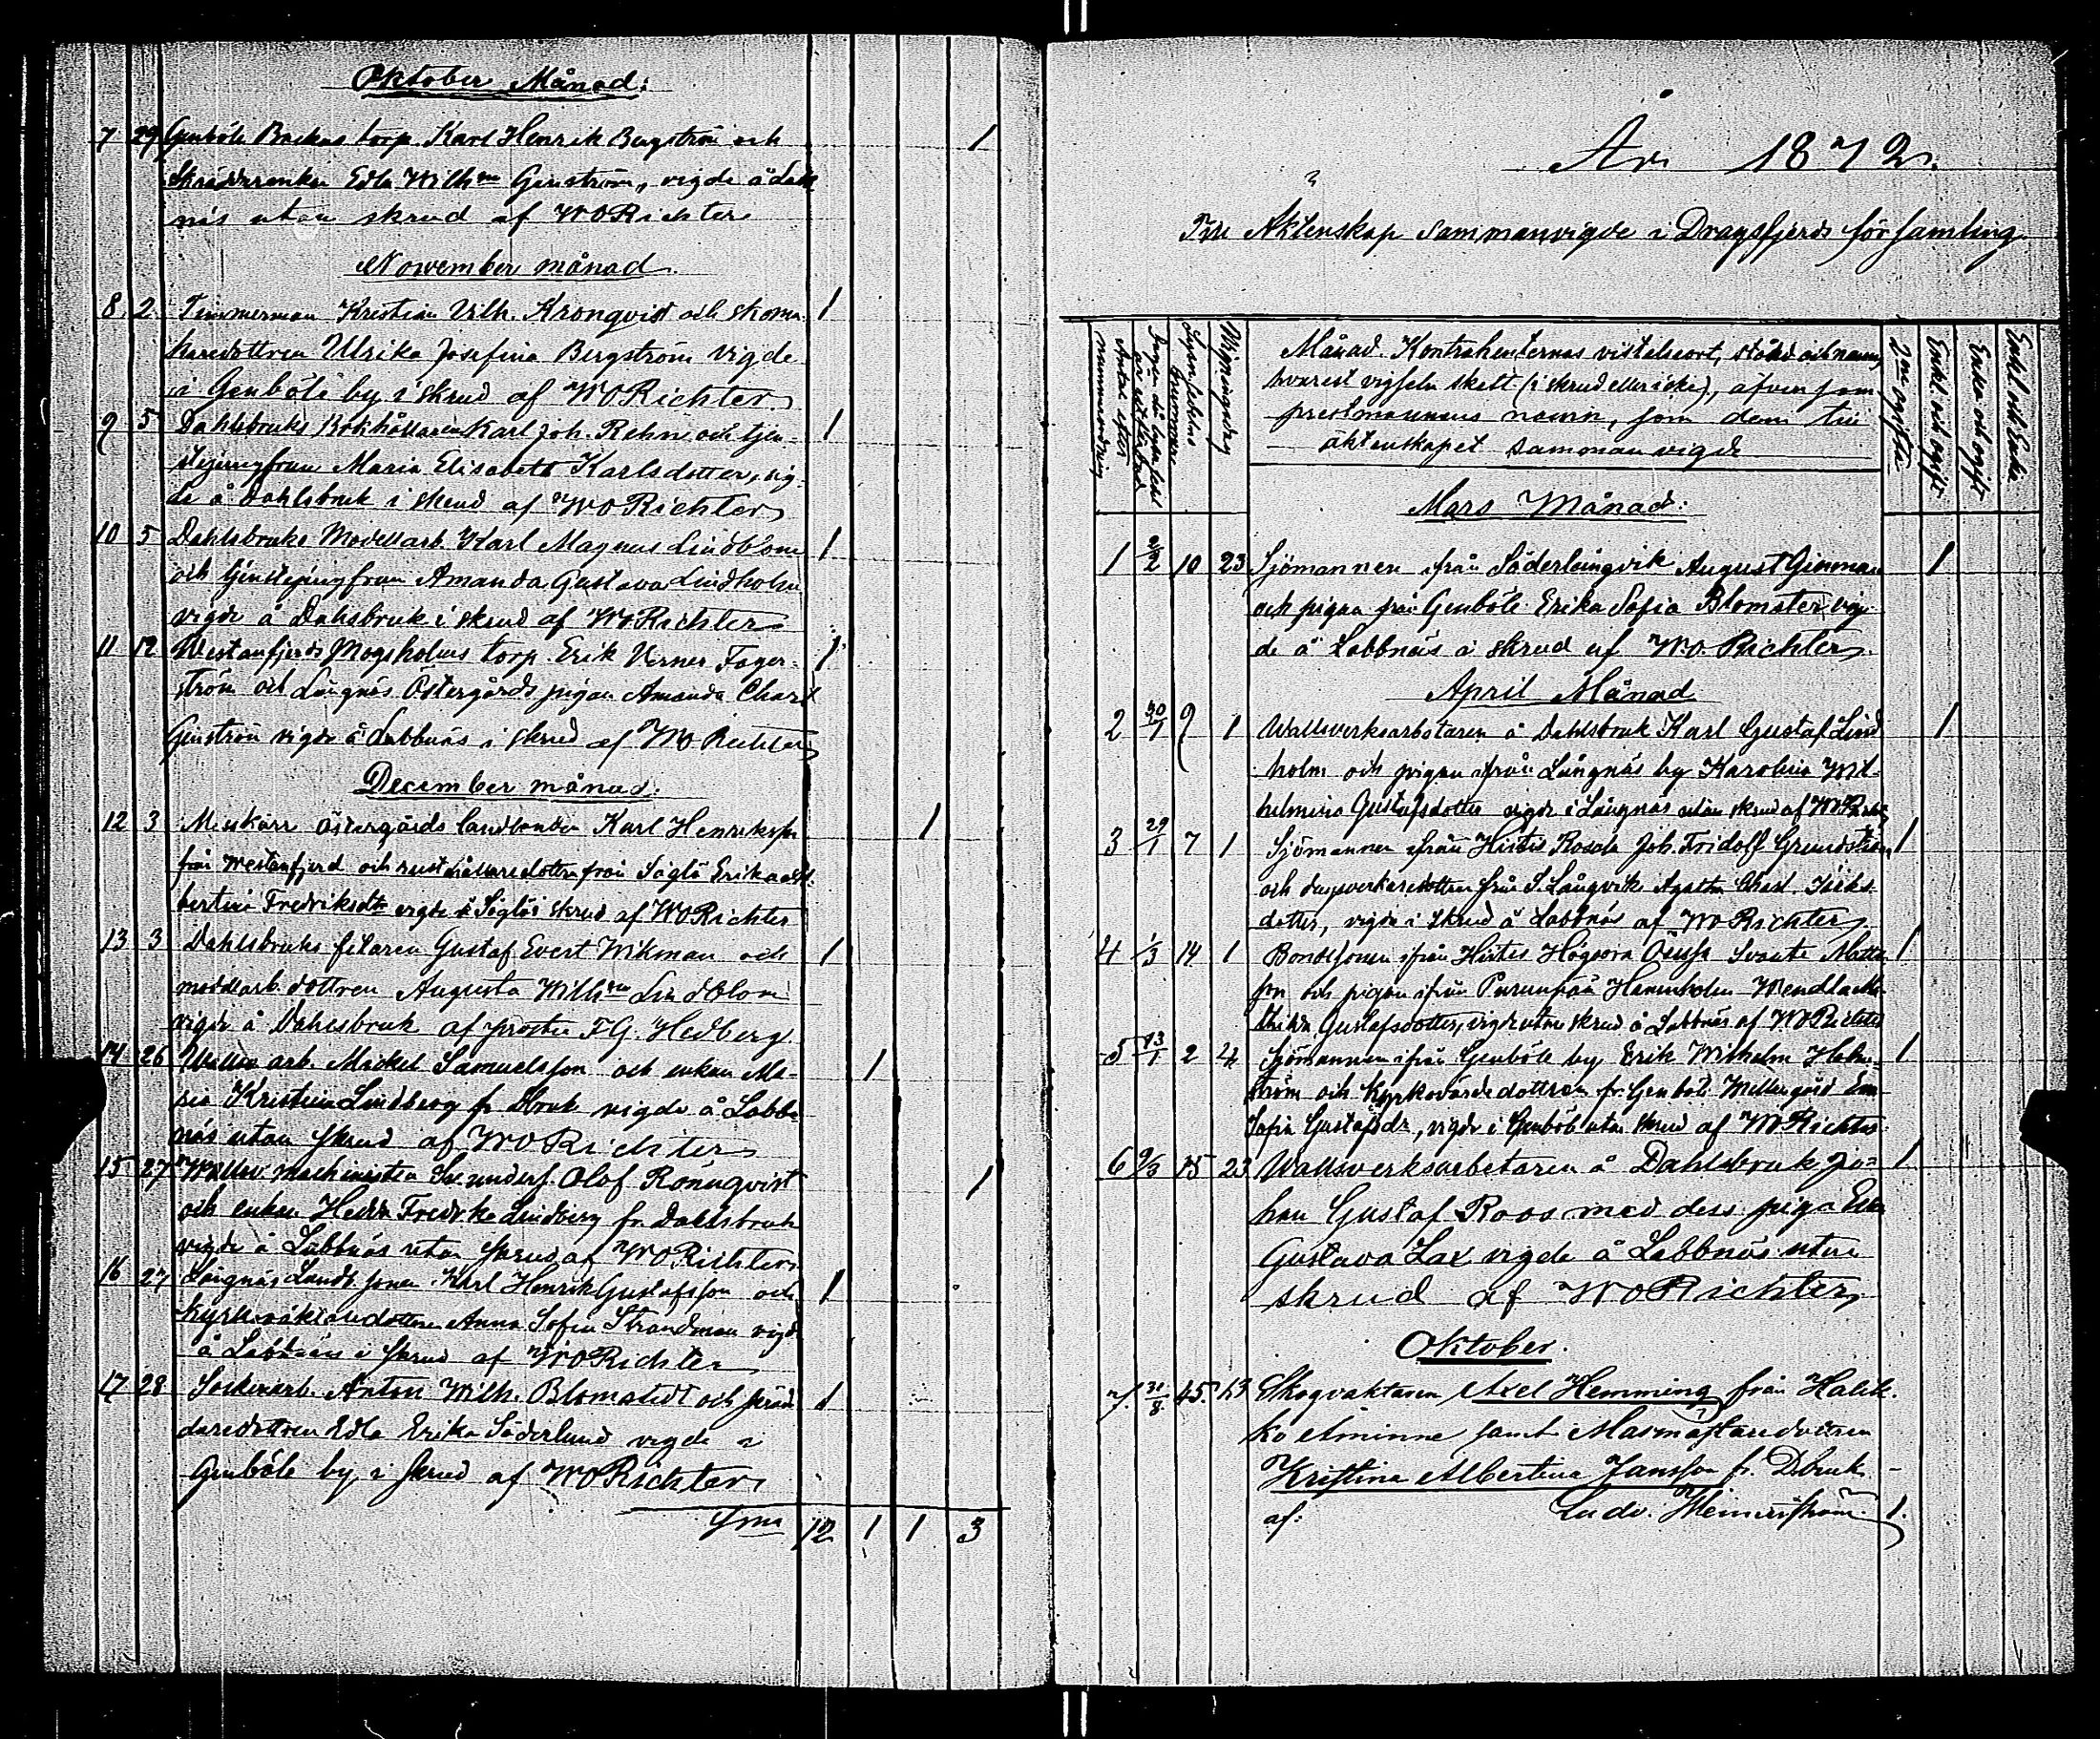 Oktober Månad:
7 29 Genböle Backas torp. Karl Henrik Bergström och 1
Skräddarenkan Edla Wilh:na Genström, vigde å Labb
näs utan skrud af WORichter
November månad
8. 2. Timmerman Kristian Vilh. Kronqvist och skoma 1
karedottren Ulrika Josefina Bergström vigde
i Genböle by i skrud af WORichter
9 5 Dahlsbruks Bokhållaren Karl Joh. Rehn och tjen- 1
stejungfrun Maria Elisabeth Karlsdotter, vig-
de å Dahlsbruk i skrud af WORichter
10 5 Dahlsbruks Modellarb. Karl Magnus Lindblom 1
och tjenstejungfrun Amanda Gustava Lindholm
vigde å Dahlsbruk i skrud af WORichter
11 12 Westanfjerds Mogsholms torp. Erik Verner Fager- 1
ström och Långnäs Östergårds pigan Amanda Charl
Genström vigde å Labbnäs i skrud af WORichter
December månad.
12 3 Östergårds landbonden Karl Henriksson 1
från Westanfjerd och rusthållaredottren från Söglö Erika Al-
bertina Fredriksdtr vigde å Söglö i skrud af WORichter
13 3 Dahlsbruks filaren Gustaf Evert Wikman och 1
modellarb. dottren Augusta Wilh:na Lindblom
vigde å Dahlsbruk af prosten F.G. Hedberg
14 26 arb. Mickel Samuelsson och enkan Ma- 1
ria Kristina Lindberg fr. Dbruk vigde å Labb-
näs utan skrud af WORichter
15 27 Wallsv. machinisten Olof Rönnqvist 1
och enkan Hedda Fredrika Lindberg fr. Dahlsbruk
vigde å Labbnäs utan skrud af WORichter
16 27 Långnäs Landb. sonen Karl Henrik Gustafsson och 1
kyrkväktaredottren Anna Sofia Strandman vigde
å Labbnäs i skrud af WORichter
17 28 Sockenarb. Anton Wilh. Blomstedt och skräd 1
daredottren Edla Erika Söderlund vigde i
Genböle by i skrud af WORichter
Sma 12 1 1 3
År 1872.
Till Äktenskap Sammanvigde i Dragsfjerds församling
Antal efter nummerordning
Vigningsdag
Månad. Kontrahenternas vistelseort, stånd och namn,
hvarest vigseln skett (i skrud eller icke), äfven som
prestmannens namn, som dem till
äktenskapet sammanvigde
2ne ogifta
Enkl. och ogift
Enka och ogift
Enkl. och Enka
Mars Månad:
1 2/2 10 23 Sjömannen ifrån Söderlångvik August Ginman 1
och pigan från Genböle Erika Sofia Blomster vig-
de å Labbnäs i skrud af W.O. Richter
April Månad
2 30/1 9 1 Wallsverksarbetaren å Dahlsbruk Karl Gustaf Lind 1
holm och pigan ifrån Långnäs by Karolina Wil-
helmina Gustafsdotter vigde i Långnäs utan skrud af WORichter
3 29/1 7 1 Sjömannen ifrån Hitis Rosala Joh. Fridolf Grundström 1
och dagsverkaredottren från S. Långvik Agatha Charl. Isaks-
dotter, vigde i skrud å Labbnäs af WORichter
4 1/3 14 1 Bondesonen ifrån Hitis Högsåra Svante Matts 1
son och pigan ifrån Purunpää Hamnholm Wendla
Gustafsdotter, vigde utan skrud å Labbnäs af WORichter
5 13/1 2 Sjömannen ifrån Genböle by Erik Wilhelm Holm- 1
ström och Kyrkovärdsdottren fr. Genböle Mellangård
Sofia Gustafsdr, vigde i Genböle utan skrud af WORichter
6 9/3 15 23 Wallsverksarbetaren å Dahlsbruk Jo- 1
han Gustaf Roos med dess piga Eva
Gustava Lax vigde å Labbnäs utan
skrud af WORichter
Oktober.
7. 31/8. 45. 13 Skogvaktaren Axel Hemming från Halik-
ko Åminne samt Masmästaredottren
Kristina Albertina Jansson fr. Dbruk -
af: Ludv. 1.